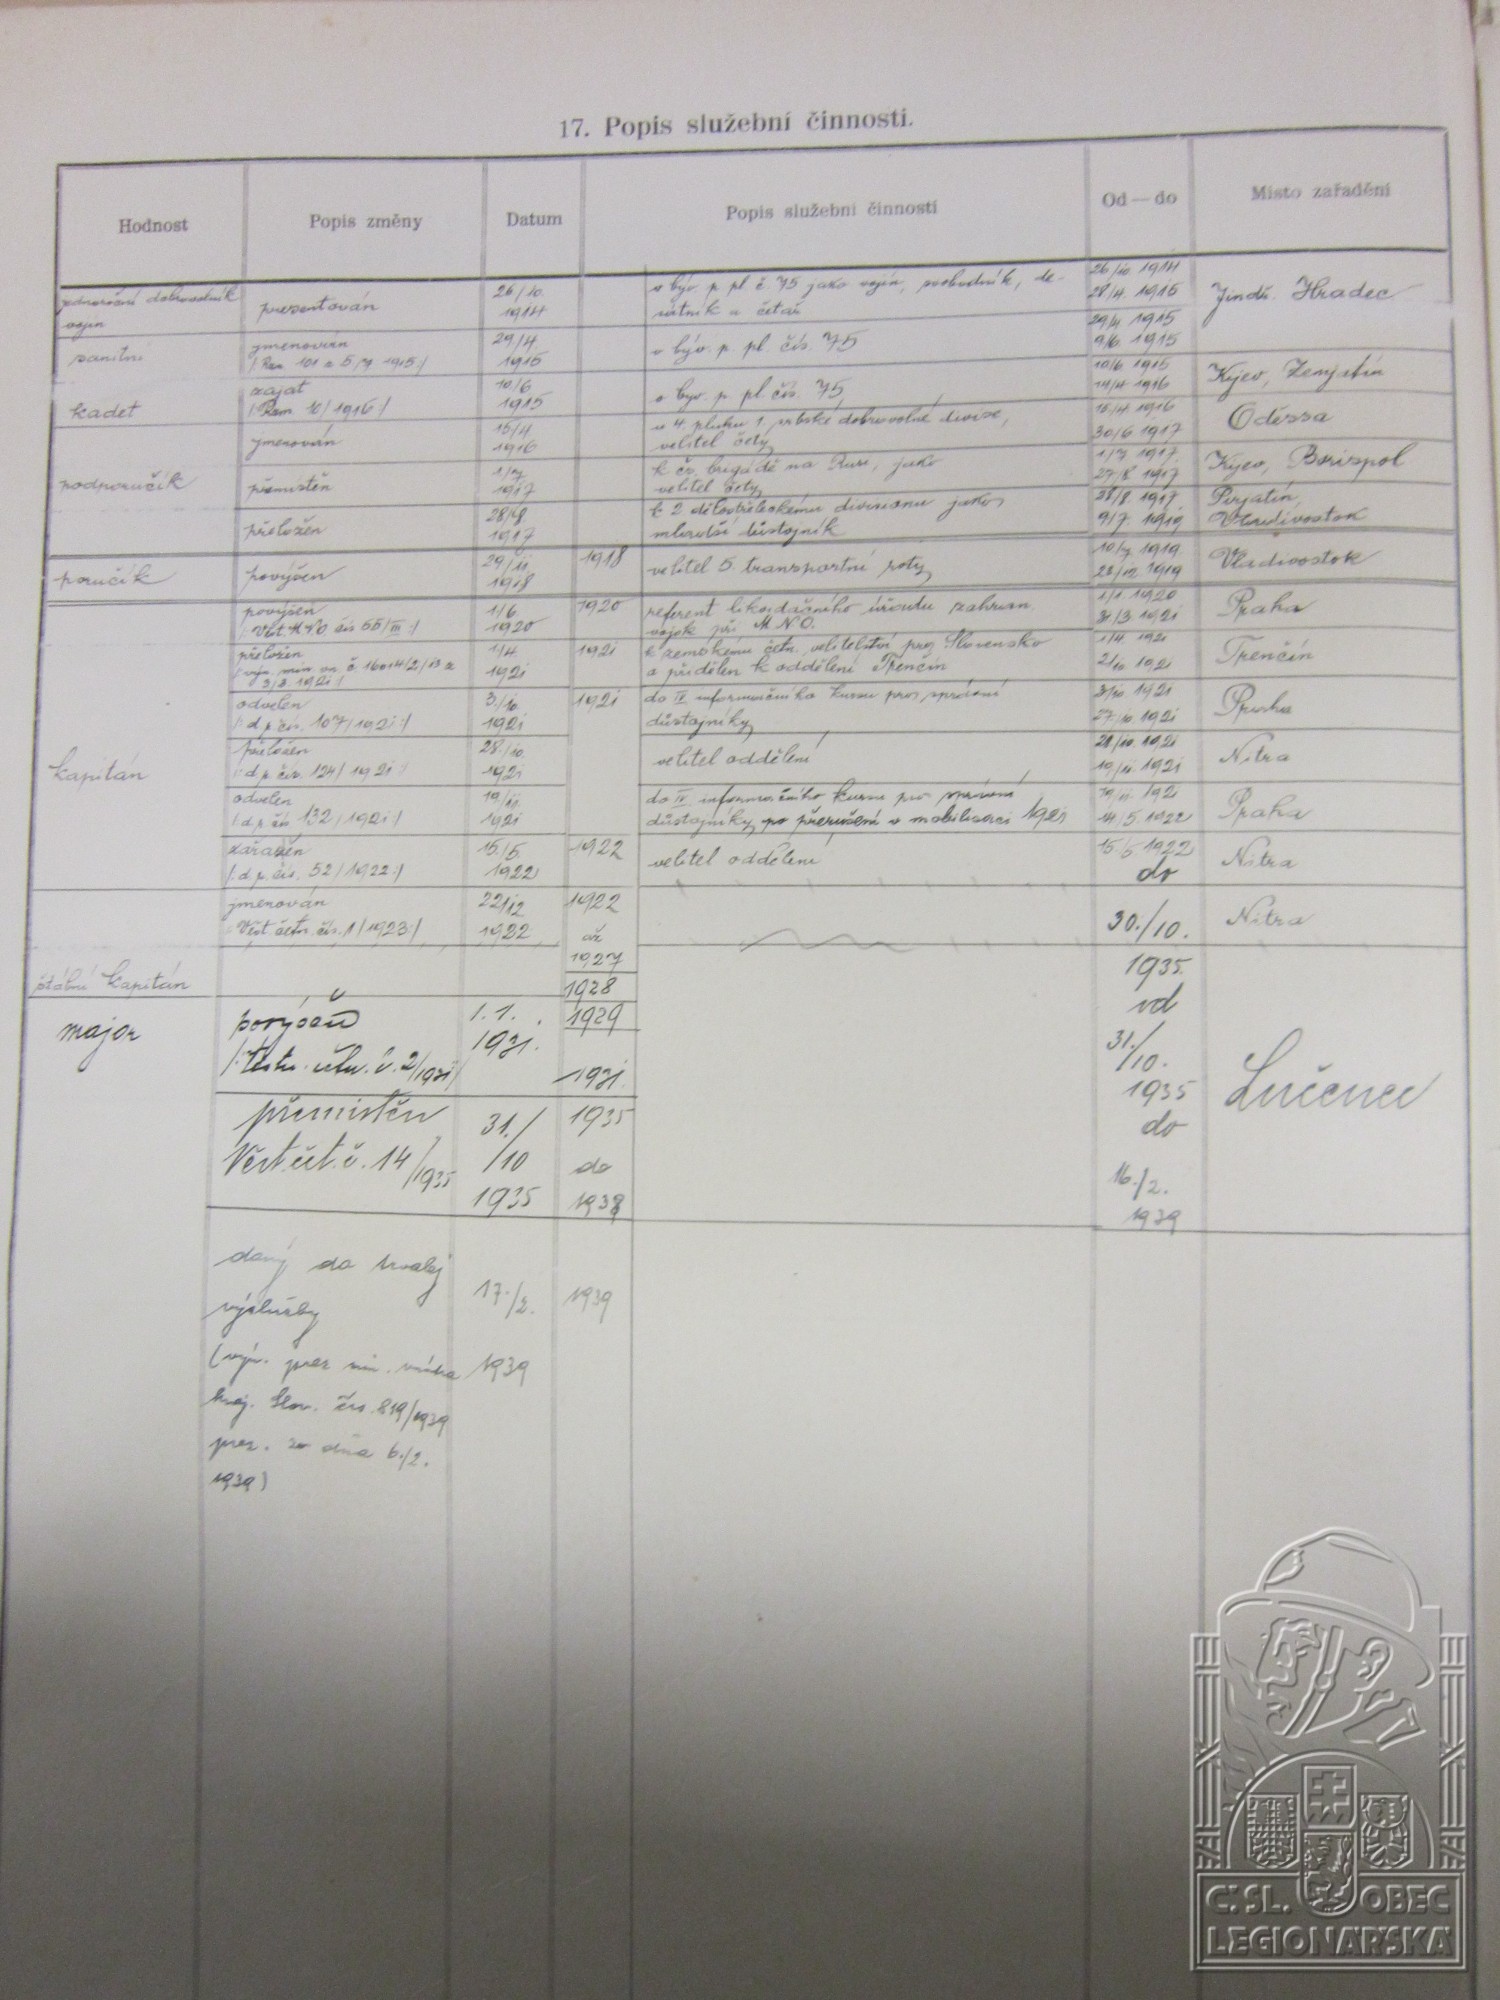 17. Popis služební činnosti.
Hodnost Popis změny Datum Popis služební činnosti Od — do Místo zařadění
jednoroční dobrovolník
vojín
presentován
26/10.
1914
v býv. p. pl č. 75 jako vojín, svobodník, de-
sátník a četař
26/10 1914
28/4. 1915
Jindř. Hradec
sanitní
jmenován
29/4
1915
v býv. p. pl. čís. 75
29/4 1915
9/6. 1915
kadet
zajat
10/6
1915
v býv. p. pl. čís. 75,
10/6 1915
14/4 1916
Kyjev,
jmenován
15/4
1916
u 4 pluku 1. srbské dobrovolné divise,
velitel čety
15/4 1916
30/6 1917
Odessa
podporučík
přemístěn
1/7
1917
k čs. brigádě na Rusi, jako
velitel čety
1/7 1917.
27/8 1917
Kyjev, Borispol
přeložen
28/8.
1917
k 2 dělostřeleckému divisionu jako
mladší důstojník
28/8 1917
9/7. 1919
Pirjatín,
Vladivostok
poručík
povýšen
29/11
1918
1918
velitel 5. transportní roty
10/7 1919
28/12. 1919
Vladivostok
povýšen
/: Věst. MNO. čís 55/III :/
1/6
1920
1920
referent likvidačního úřadu zahran.
vojsk při MNO.
1/1. 1920
31/3 1921
Praha
přeložen
1/4
1921
1921
k zemskému četn. velitelství pro Slovensko
a přidělen k oddělení Trenčín
1/4 1921
2/10 1921
Trenčín
odvelen
/: d.p. čís. 107/1921 :/
3./10.
1921
1921
do IV informačního kursu pro správní
důstojníky
3/10 1921
27/10. 1921
Praha
kapitán
přeložen
/: d.p. čís. 124/1921 :/
28./10.
1921
velitel oddělení
28/10. 1921
10/11. 1921
Nitra
odvelen
/: d.p. čís. 132/1921 :/
19/11.
1921
do IV informačního kursu pro správní
důstojníky po přerušení v mobilisaci 1921
19/11. 1921
14/5 1922
Praha
zařazen
/: d.p. čís. 52/1922 :/
15./5.
1922
1922
velitel oddělení
15./5. 1922
do
Nitra
jmenován
Věst. četn. čís. 1/1923 :/
22/12
1922
1922
až
1927
30./10.
1935.
Nitra
štábní kapitán
1928
major
povýšen
1.1.
1931.
1929
1931.
od
31./
10.
1935
do
Lučenec
přemístěn
Věst. čet. č. 14/1935
31./
/10
1935
1935
do
1938
16./2.
1939
daný do trvalej
výslužby
17./2.
1939
1939
(výn. prez min. vnútra
kraj. Slov. čís. 819/1939
prez. zo dňa 6./2.
1939)
Č.SL. OBEC
LEGIONÁŘSKÁ